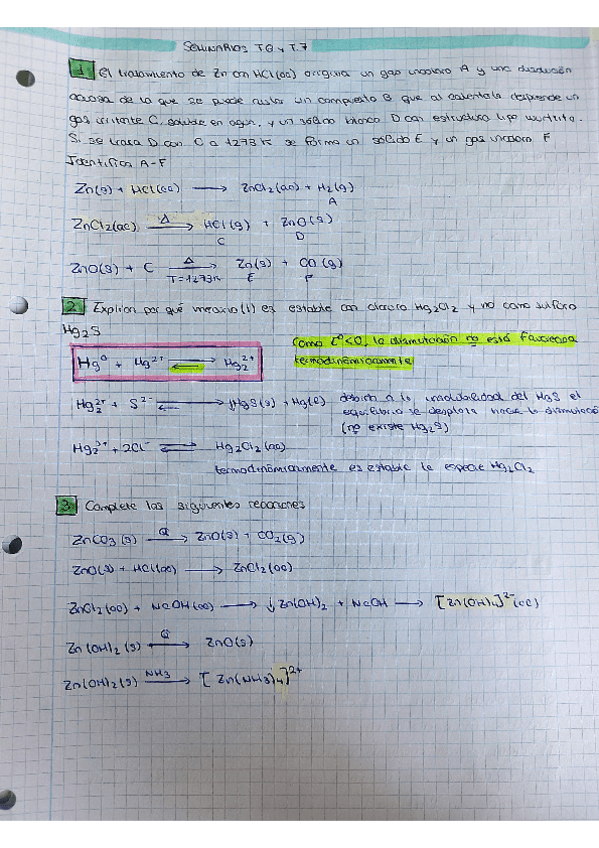 SEMINARIOS T6 y T.7
1. El tratamiento de Zn con HCl(ac) origina un gas incoloro A y una disolución
acuosa de la que se puede aislar un compuesto B que al calentarlo desprende un
gas irritante C, soluble en agua, y un sólido blanco D con estructura tipo wurtzita.
Si se trata D con C a 1273 K se forma un sólido E y un gas incoloro F
Identifica A-F
Zn(s) + HCl(ac) ⟶ ZnCl2(ac) + H2(g)
A
ZnCl2(ac) —Δ→ HCl(g) + ZnO(s)
C D
ZnO(s) + C —Δ→ Zn(s) + CO(g)
T=1273K E F
2. Explican por qué mercurio(I) es estable con cloruro Hg2Cl2 y no como sulfuro
Hg2S
Hg⁰ + Hg²⁺ ⇌ Hg2²⁺
Como E⁰<0, la dismutación no está favorecida
termodinámicamente
Hg2²⁺ + S²⁻ ⇌ ↓HgS(s) + Hg(l) debido a la insolubilidad del HgS el
equilibrio se desplaza hacia la dismutació
(no existe Hg2S)
Hg2²⁺ + 2Cl⁻ ⇌ Hg2Cl2(ac)
termodinámicamente es estable la especie Hg2Cl2
3. Complete las siguientes reacciones
ZnCO3(s) —Q→ ZnO(s) + CO2(g)
ZnO(s) + HCl(ac) ⟶ ZnCl2(ac)
ZnCl2(ac) + NaOH(ac) ⟶ ↓Zn(OH)2 + NaOH ⟶ [Zn(OH)4]²⁻(ac)
Zn(OH)2(s) —Q→ ZnO(s)
Zn(OH)2(s) —NH3→ [Zn(NH3)4]²⁺